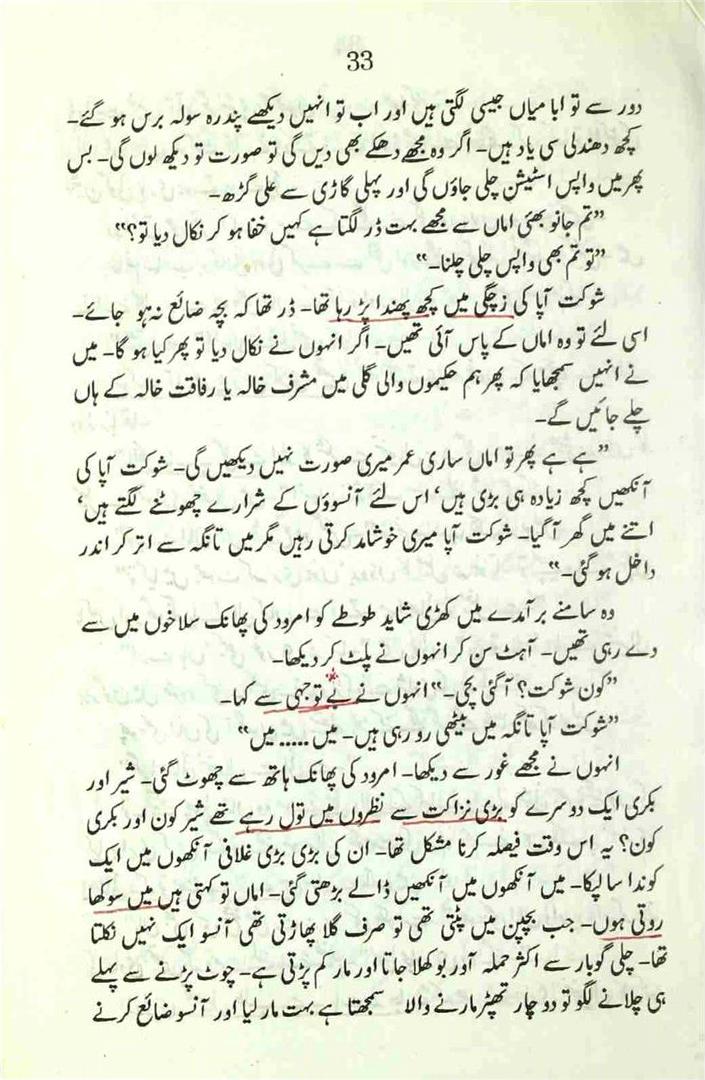 33
دور سے تو ابا میاں جیسی لگتی ہیں اور اب تو انہیں دیکھے پندرہ سولہ برس ہو گئے۔
کچھ دھندلی سی یاد ہیں۔ اگر وہ مجھے دھکے بھی دیں گی تو صورت تو دیکھ لوں گی۔ بس
پھر میں واپس اسٹیشن چلی جاؤں گی اور پہلی گاڑی سے علی گڑھ۔
”تم جانو بھئی اماں سے مجھے بہت ڈر لگتا ہے کہیں خفا ہو کر نکال دیا تو؟“
”تو تم بھی واپس چلی چلنا۔“
شوکت آپا کی زچگی میں کچھ پھندا پڑ رہا تھا۔ ڈر تھا کہ بچہ ضائع نہ ہو جائے۔
اسی لئے تو وہ اماں کے پاس آئی تھیں۔ اگر انہوں نے نکال دیا تو پھر کیا ہو گا۔ میں
نے انہیں سمجھایا کہ پھر ہم حکیموں والی گلی میں مشرف خالہ یا رفاقت خالہ کے ہاں
چلے جائیں گے۔
”ہے ہے پھر تو اماں ساری عمر میری صورت نہیں دیکھیں گی۔ شوکت آپا کی
آنکھیں کچھ زیادہ ہی بڑی ہیں‘ اس لئے آنسوؤں کے شرارے چھوٹنے لگتے ہیں‘
اتنے میں گھر آ گیا۔ شوکت آپا میری خوشامد کرتی رہیں مگر میں تانگہ سے اتر کر اندر
داخل ہو گئی۔“
وہ سامنے برآمدے میں کھڑی شاید طوطے کو امرود کی پھانک سلاخوں میں سے
دے رہی تھیں۔ آہٹ سن کر انہوں نے پلٹ کر دیکھا۔
”کون شوکت؟ آ گئی بچی۔“ انہوں نے بے توجہی سے کہا۔
”شوکت آپا تانگہ میں بیٹھی رو رہی ہیں۔ میں ..... میں“
انہوں نے مجھے غور سے دیکھا۔ امرود کی پھانک ہاتھ سے چھوٹ گئی۔ شیر اور
بکری ایک دوسرے کو بڑی نزاکت سے نظروں میں تول رہے تھے شیر کون اور بکری
کون؟ یہ اس وقت فیصلہ کرنا مشکل تھا۔ ان کی بڑی بڑی غلافی آنکھوں میں ایک
کوندا سا لپکا۔ میں آنکھوں میں آنکھیں ڈالے بڑھتی گئی۔ اماں تو کہتی ہیں میں سوکھا
روتی ہوں۔ جب بچپن میں پٹتی تھی تو صرف گلا پھاڑتی تھی آنسو ایک نہیں نکلتا
تھا۔ چلی گوہار سے اکثر حملہ آور بوکھلا جاتا اور مار کم پڑتی ہے۔ چوٹ پڑنے سے پہلے
ہی چلانے لگو تو دو چار تھپڑ مارنے والا سمجھتا ہے بہت مار لیا اور آنسو ضائع کرنے